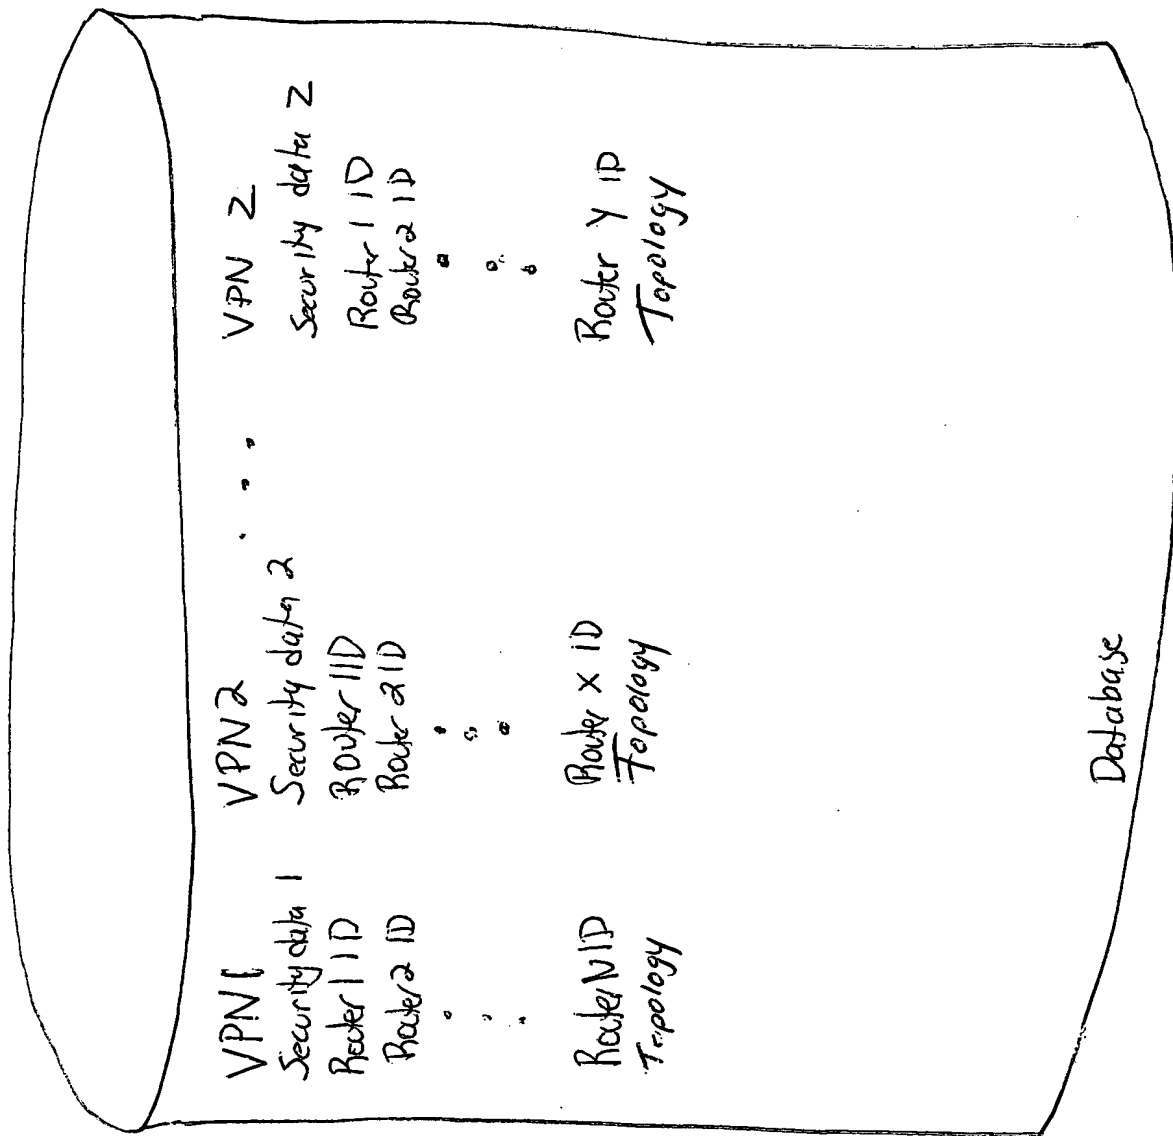 VPN1
Security data 1
Router 1 ID
Router 2 ID
Router N ID
Topology
VPN2
Security data 2
Router 1 ID
Router 2 ID
Router X ID
Topology
VPN Z
Security data Z
Router 1 ID
Router 2 ID
Router Y ID
Topology
Database